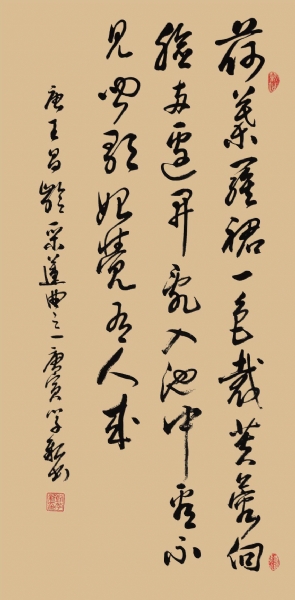 荷葉羅裙一色裁芙蓉向
臉两邊開亂入池中看不
見聞歌始覺有人來
唐王昌齡采蓮曲之一庚寅学书